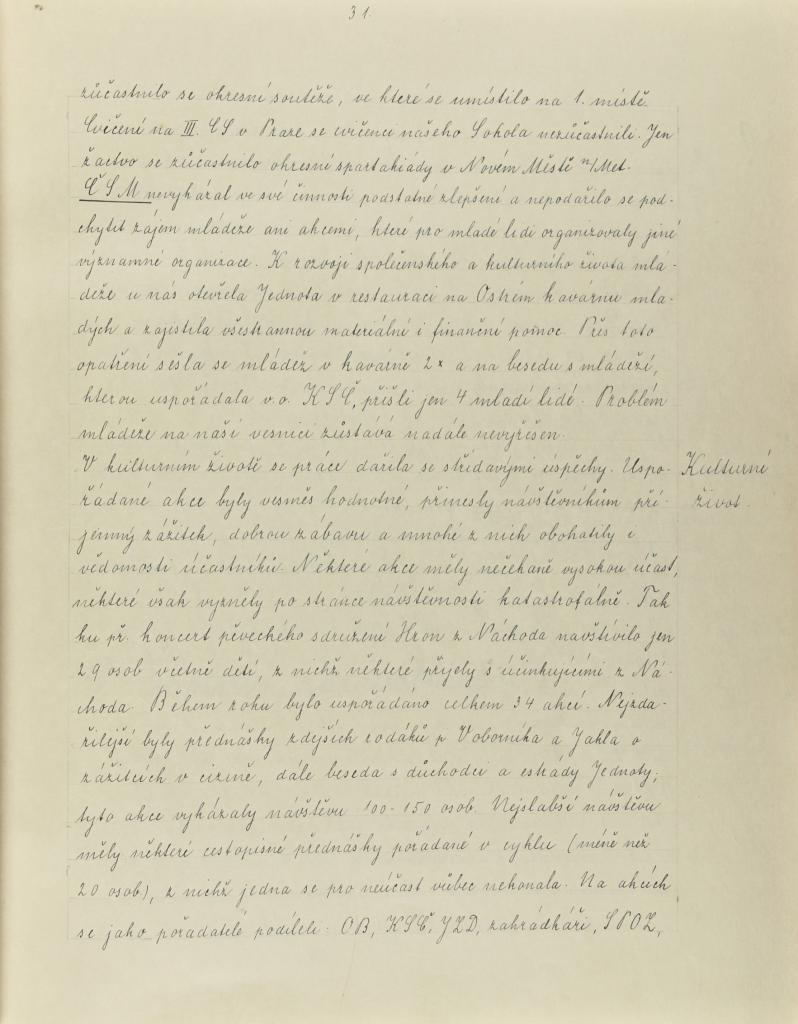 31.
zůčastnilo se okresní soutěže, ve které se umístilo na 1. místě.
Cvičení na III. CS v Praze se cvičenci našeho Sokola nezúčastnili. Jen
žactvo se zůčastnilo okresní spartakiády v Novém Městě n/Met.
ČSM nevykázal ve své činnosti podstatné zlepšení a nepodařilo se pod-
chytit zájem mládeže ani akcemi, které pro mladé lidi organizovaly jiné
významné organizace. K rozvoji společenského a kulturního života mlá-
deže u nás otevřela Jednota v restauraci na Ostrém kavárnu mla-
dých a zajistila všestrannou materiální i finanční pomoc. Přes toto
opatření sešla se mládež v kavárně 2x a na besedu s mládeží,
kterou uspořádala v.o. KSČ, přišli jen 4 mladí lidé. Problém
mládeže na naší vesnici zůstává nadále nevyřešen.
V kulturním životě se práce dařila se střídavými úspěchy. Uspo-
Kulturní
řádané akce byly vesměs hodnotné, přinesly návštěvníkům pří-
život.
jemný zážitek, dobrou zábavu a mnohé z nich obohatily i
vědomosti účastníků. Některé akce měly nečekaně vysokou účast,
některé však vyzněly po stránce návštěvnosti katastrofálně. Tak
ku př. koncert pěveckého sdružení Hron z Náchoda navštívilo jen
29 osob včetně dětí, z nichž některé přijely s účinkujícími z Ná-
choda. Během roku bylo uspořádáno celkem 34 akcí. Nejzda-
řilejší byly přednášky zdejších rodáků p. Voborníka a Jakla o
zážitcích v cizině, dále beseda s důchodci a estrády Jednoty;
tyto akce vykázaly návštěvu 100-150 osob. Nejslabší návštěvu
měly některé cestopisné přednášky pořádané v cyklu (méně než
20 osob), z nichž jedna se pro neúčast vůbec nekonala. Na akcích
se jako pořadatelé podíleli: OB, KSČ, JZD, zahrádkáři, SPOZ,